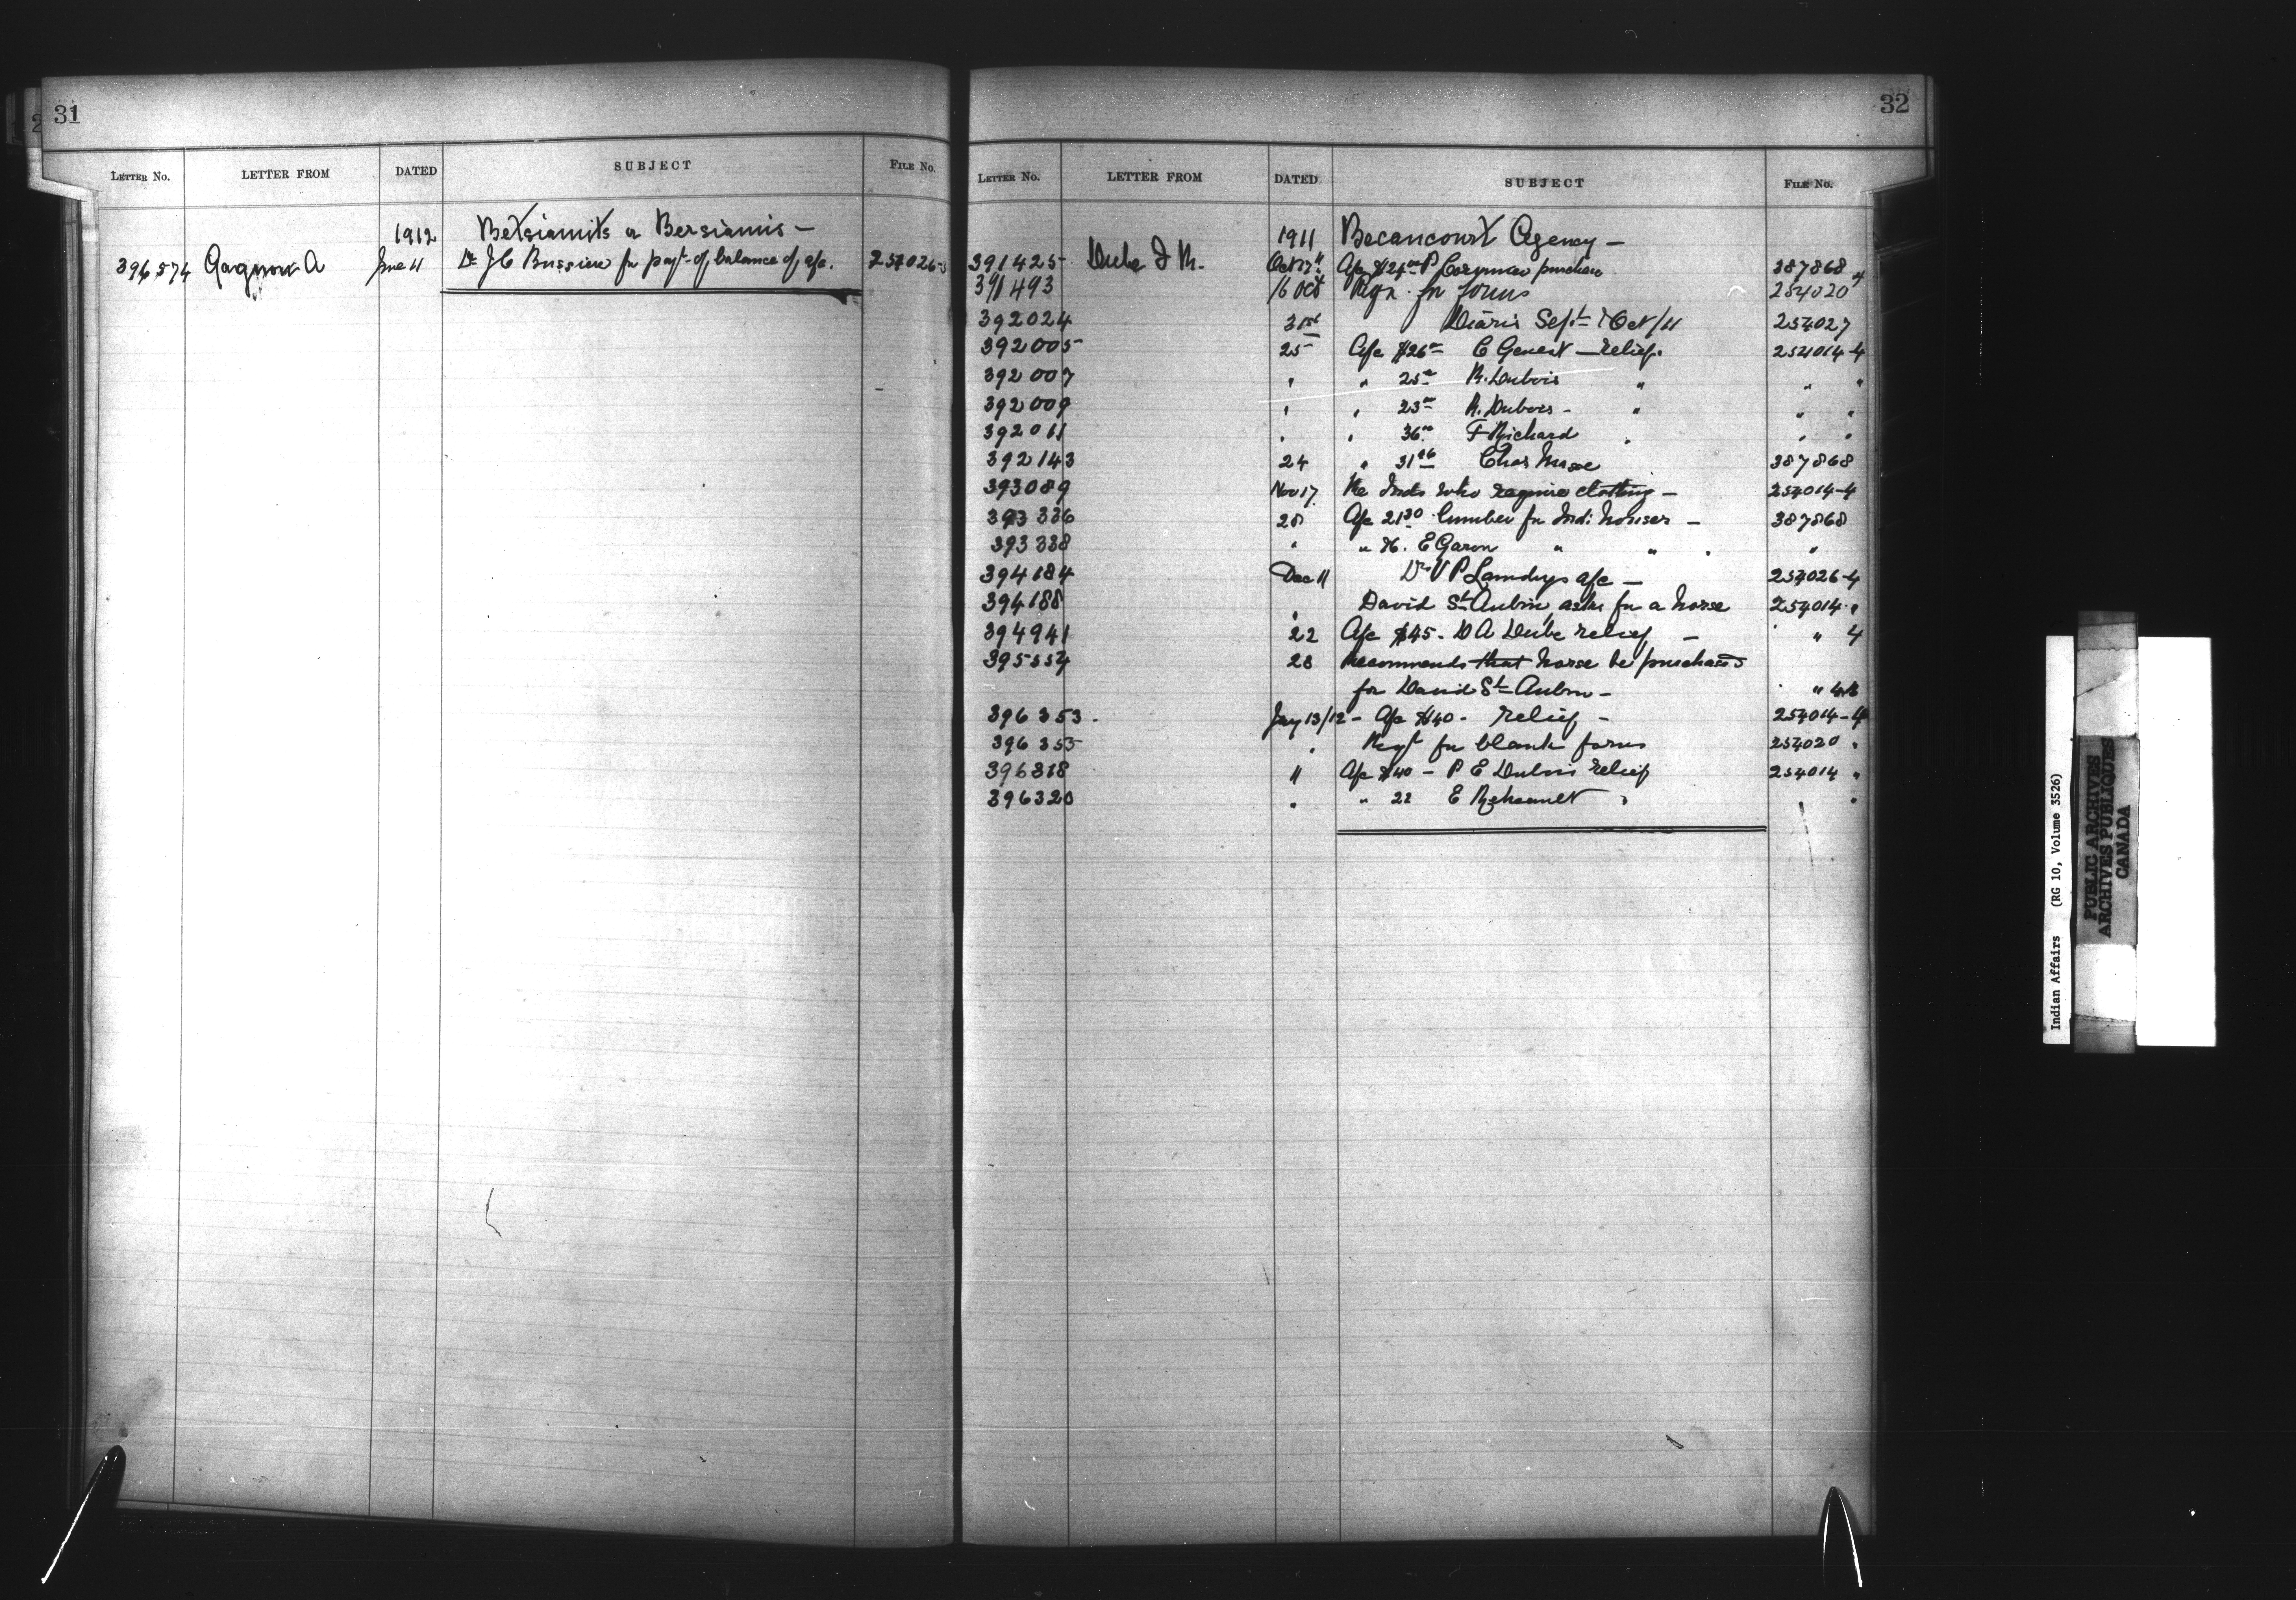 31
LETTER NO. LETTER FROM DATED SUBJECT FILE No.
1912 Betsiamits or Bersiamis —
396,574 Gagnon A June 11 Dr J C Bussiere for payt of balance of a/c. 254026-5
32
LETTER NO. LETTER FROM DATED SUBJECT FILE No.
1911 Becancourt Agency —
391425 Dube J M. Oct 13" A/c $12 purchase 387868
391493 16 Oct Reqn. for forms 254020 4
392024 31st Diaris Sept & Oct/11 254027
392005 25 A/c $26 00 E Genest — relief. 254014-4
392007 " " 25 00 R. Dubois " " "
392009 " " 23 00 R. Dubois - " " "
392011 " " 36 00 F Richard " " "
392143 24 " 31 06 Chas 387868
393089 Nov 17 Re Inds who require clothing — 254014-4
393336 28 A/c 21 30 lumber for Indi houses — 387868
393338 " " E Garon " " " "
394184 Dec 11 Dr V P Landrys a/c — 254026-4
394188 " David St Aubin asks for a horse 254014 "
394941 22 A/c $45. D A Dube relief — " 4
395554 28 Recommends that horse be purchased
for David St Aubin — "
396353. Jany 13/12 — A/c $40 - relief — 254014-4
396355 " Reqt for blank forms 254020 "
396318 11 A/c $40 — P E Dubois relief 254014 "
396320 " " 22 E " "
Indian Affairs (RG 10, Volume 3526)
PUBLIC ARCHIVES
ARCHIVES PUBLIQUES
CANADA